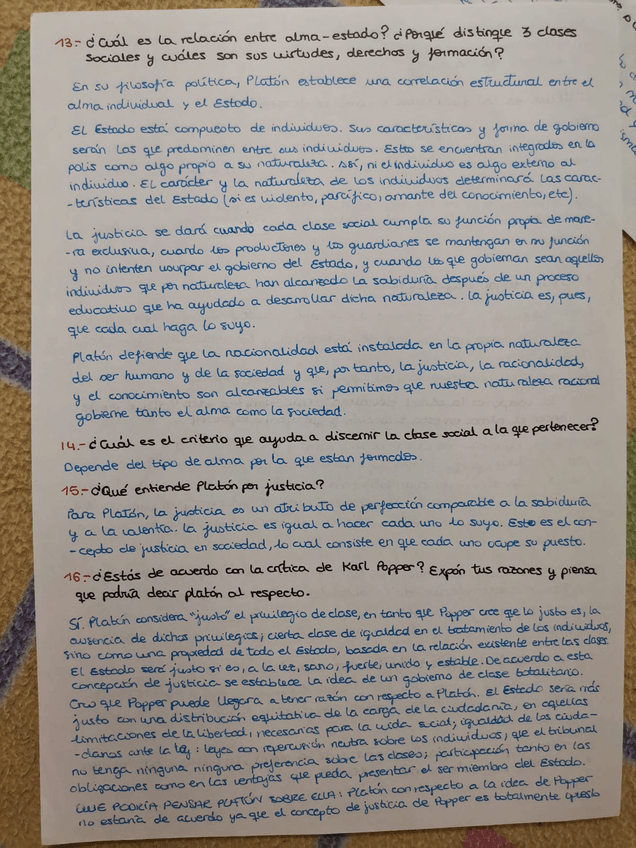 13.- ¿Cuál es la relación entre alma-estado? ¿Porqué distingue 3 clases
sociales y cuáles son sus virtudes, derechos y formación?
En su filosofía política, Platón establece una correlación estructural entre el
alma individual y el Estado.
El Estado está compuesto de individuos. Sus características y forma de gobierno
serán las que predominen entre sus individuos. Esto se encuentran integrados en la
polis como algo propio a su naturaleza. Así, ni el individuo es algo externo al
individuo. El carácter y la naturaleza de los individuos determinará las carac-
-terísticas del Estado (si es violento, pacífico, amante del conocimiento, etc).
La justicia se dará cuando cada clase social cumpla su función propia de mane-
-ra exclusiva, cuando los productores y los guardianes se mantengan en su función
y no intenten usurpar el gobierno del Estado, y cuando los que gobiernan sean aquellos
individuos que por naturaleza han alcanzado la sabiduría después de un proceso
educativo que ha ayudado a desarrollar dicha naturaleza. La justicia es, pues,
que cada cual haga lo suyo.
Platón defiende que la racionalidad está instalada en la propia naturaleza
del ser humano y de la sociedad y que, por tanto, la justicia, la racionalidad,
y el conocimiento son alcanzables si permitimos que nuestra naturaleza racional
gobierne tanto el alma como la sociedad.
14.- ¿Cuál es el criterio que ayuda a discernir la clase social a la que pertenecer?
Depende del tipo de alma por la que estan formados.
15.- ¿Qué entiende Platón por justicia?
Para Platón, la justicia es un atributo de perfección comparable a la sabiduría
y a la valentía. La justicia es igual a hacer cada uno lo suyo. Este es el con-
-cepto de justicia en sociedad, lo cual consiste en que cada uno ocupe su puesto.
16.- ¿Estás de acuerdo con la crítica de Karl Popper? Expón tus razones y piensa
que podría decir platón al respecto.
Sí. Platón considera "justo" el privilegio de clase, en tanto que Popper cree que lo justo es, la
ausencia de dichos privilegios; cierta clase de igualdad en el tratamiento de los individuos,
sino como una propiedad de todo el Estado, basada en la relación existente entre las clases.
El Estado será justo si es, a la vez, sano, fuerte, unido y estable. De acuerdo a esta
concepción de justicia se establece la idea de un gobierno de clase totalitario.
Creo que Popper puede llegar a tener razón con respecto a Platón. El Estado sería más
justo con una distribución equitativa de la carga de la ciudadanía, en aquellas
limitaciones de la libertad, necesarias para la vida social; igualdad de los ciuda-
-danos ante la ley; leyes con repercusión neutra sobre los individuos; que el tribunal
no tenga ninguna ninguna preferencia sobre las clases; participación tanto en las
obligaciones como en las ventajas que pueda presentar el ser miembro del Estado.
QUE PODRÍA PENSAR PLATÓN SOBRE ELLA: Platón con respecto a la idea de Popper
no estaría de acuerdo ya que el concepto de justicia de Popper es totalmente opuesto